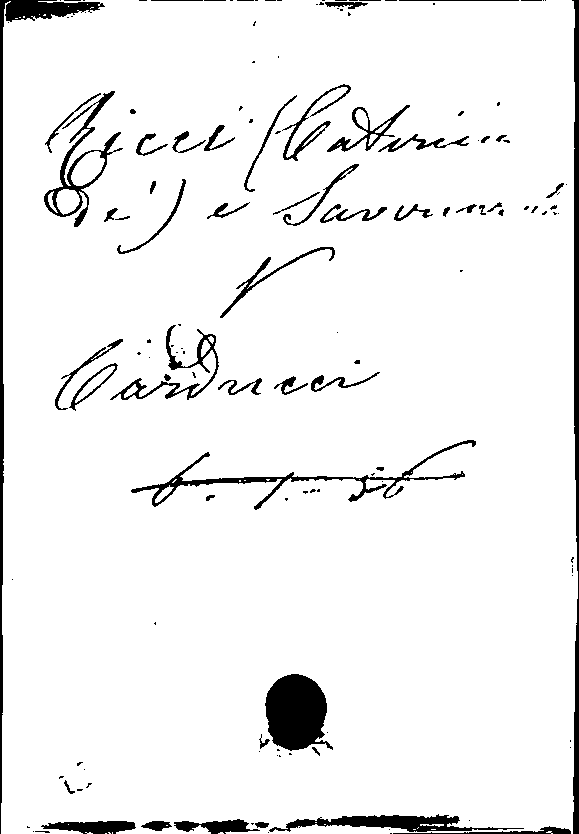 Ricci (Caterina
de') e Savonarola
V
Carducci
6. 1. 36